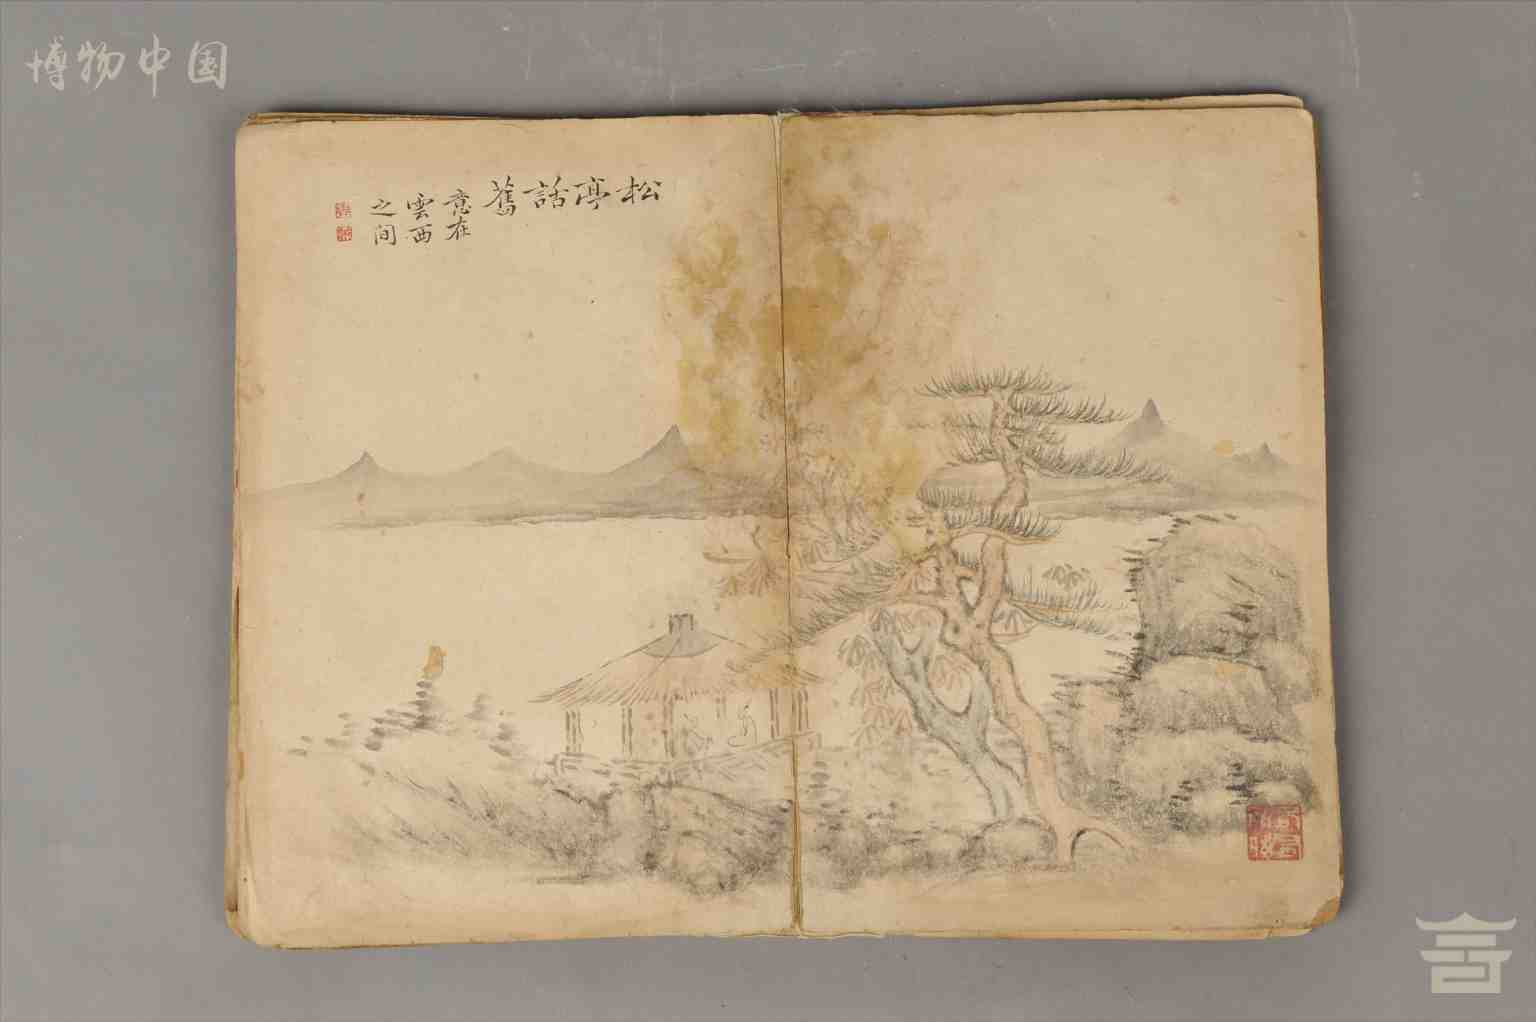 博物中国
松亭話舊
意在
雲西
之间